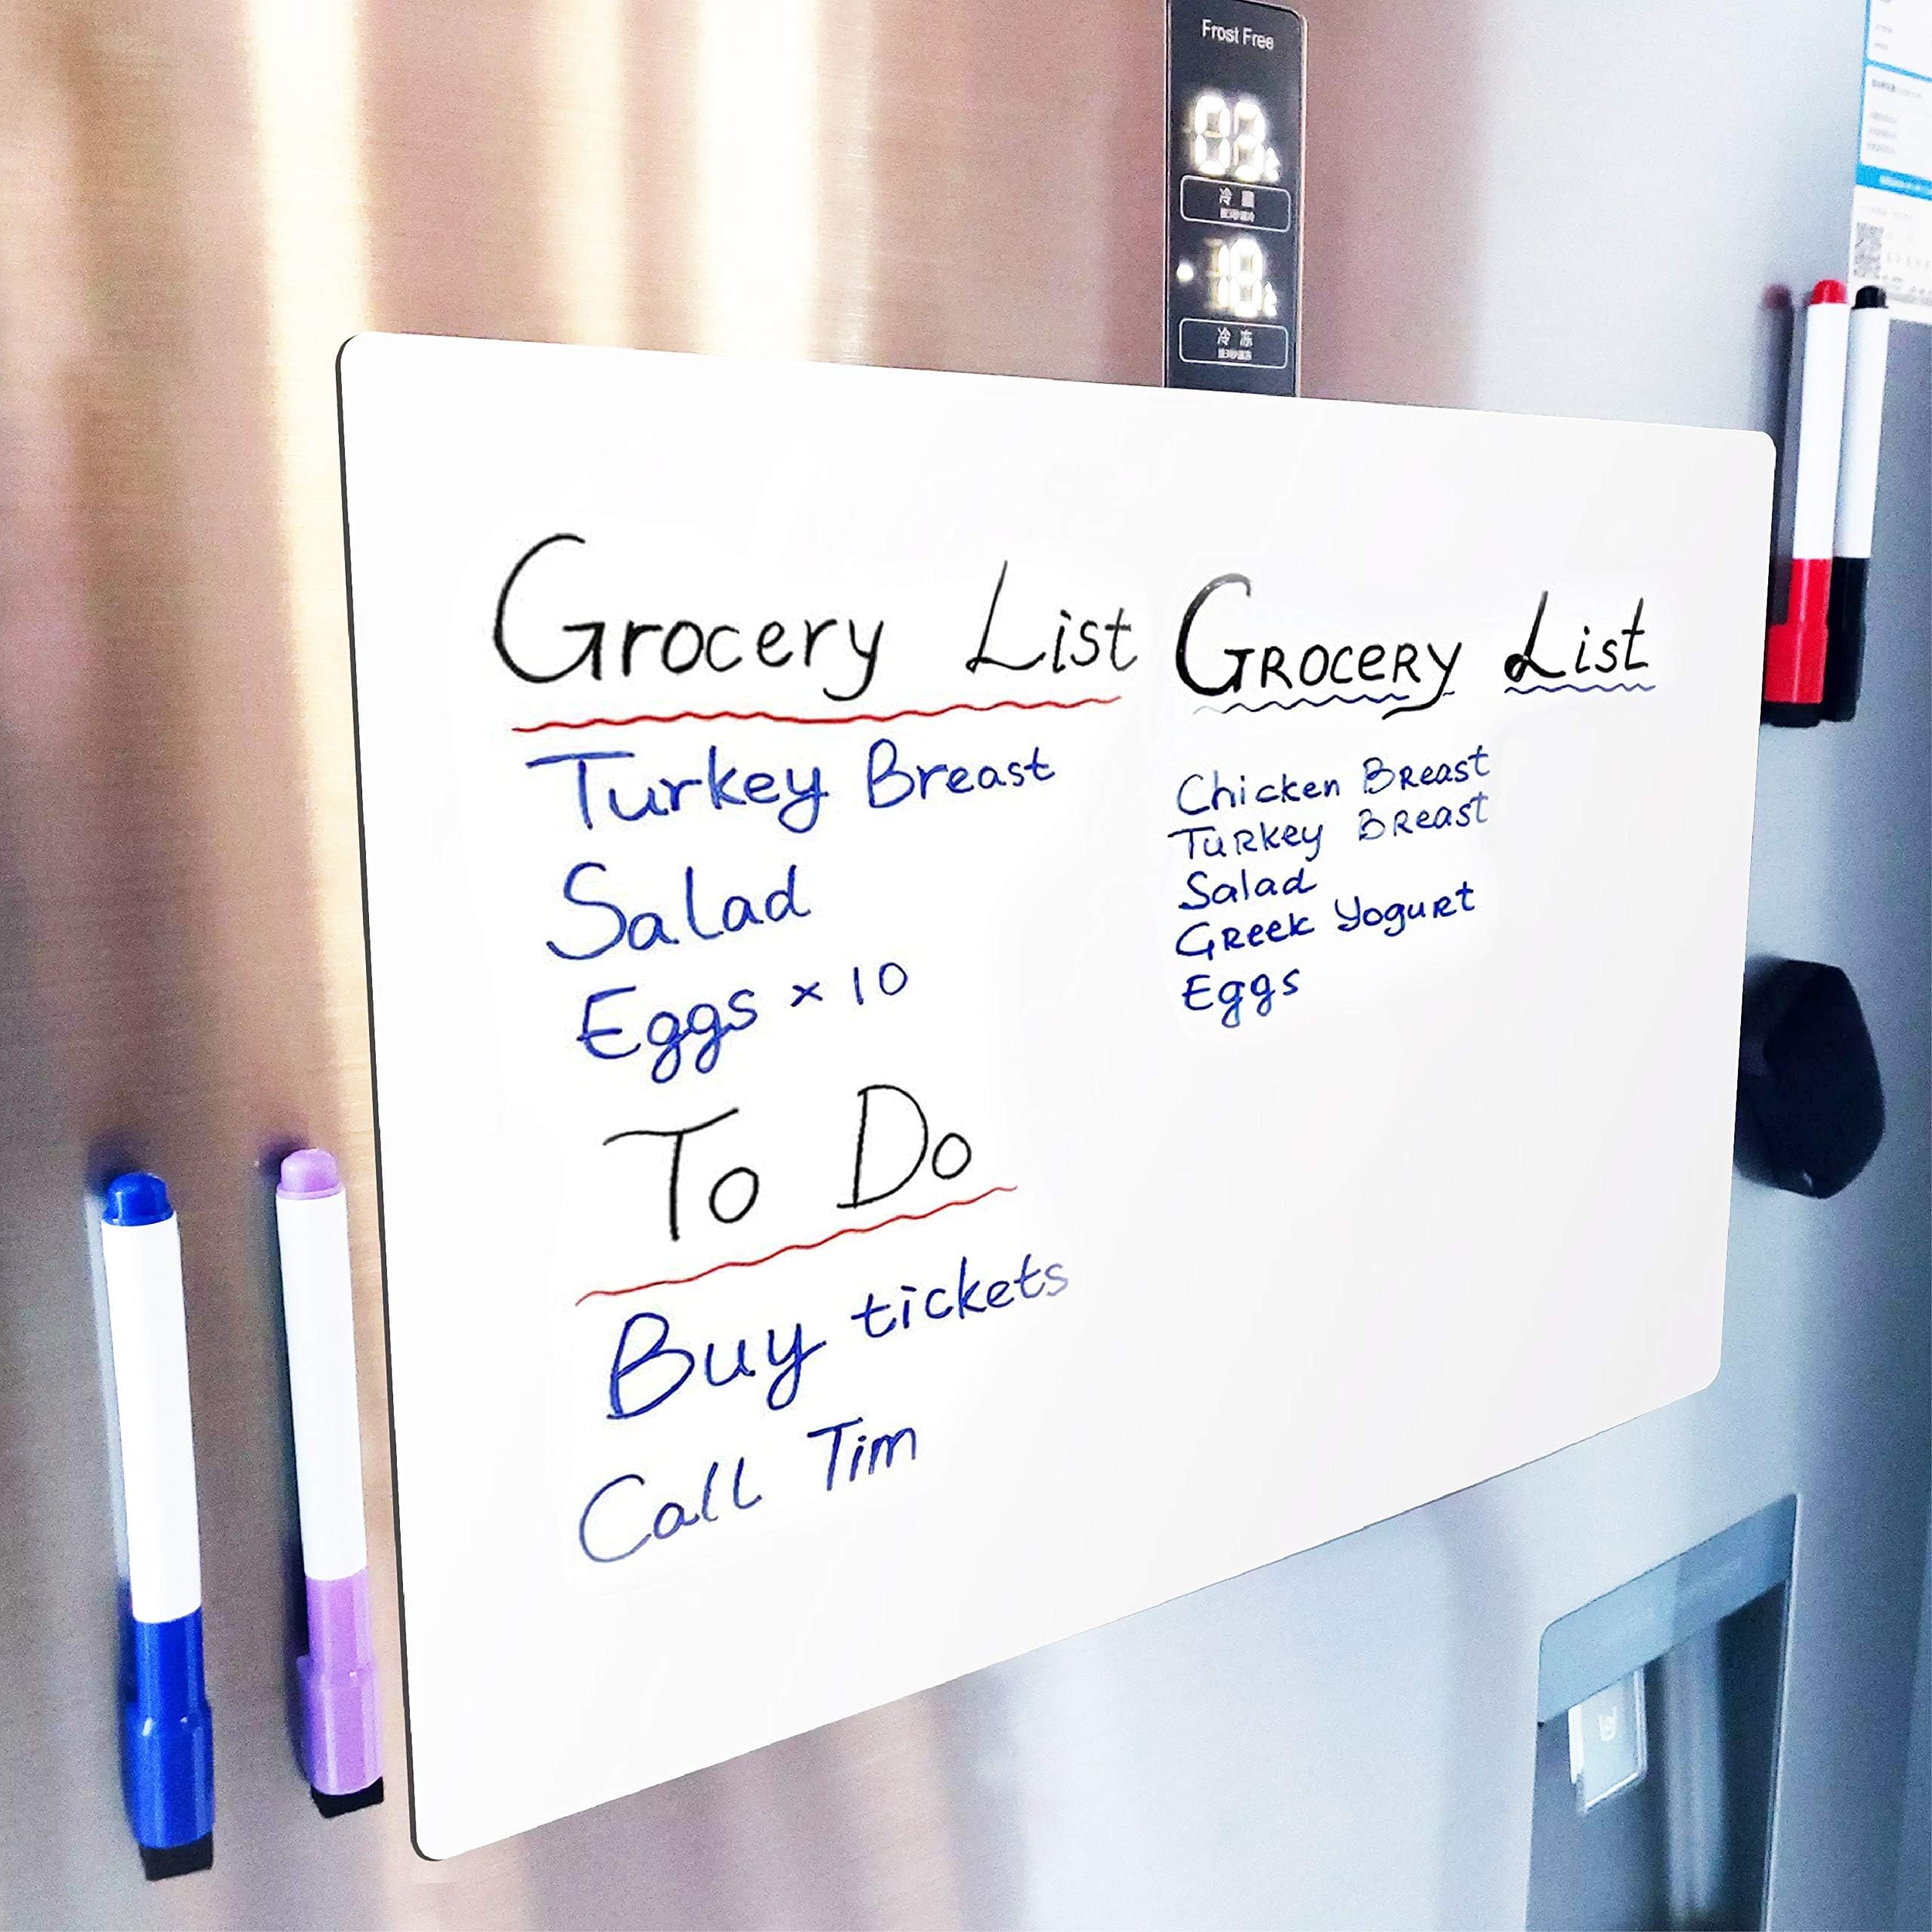 Frost Free
03
冷藏
-18
冷冻
Grocery List
Turkey Breast
Salad
Eggs × 10
To Do
Buy tickets
Call Tim
Grocery List
Chicken Breast
Turkey Breast
Salad
Greek Yogurt
Eggs